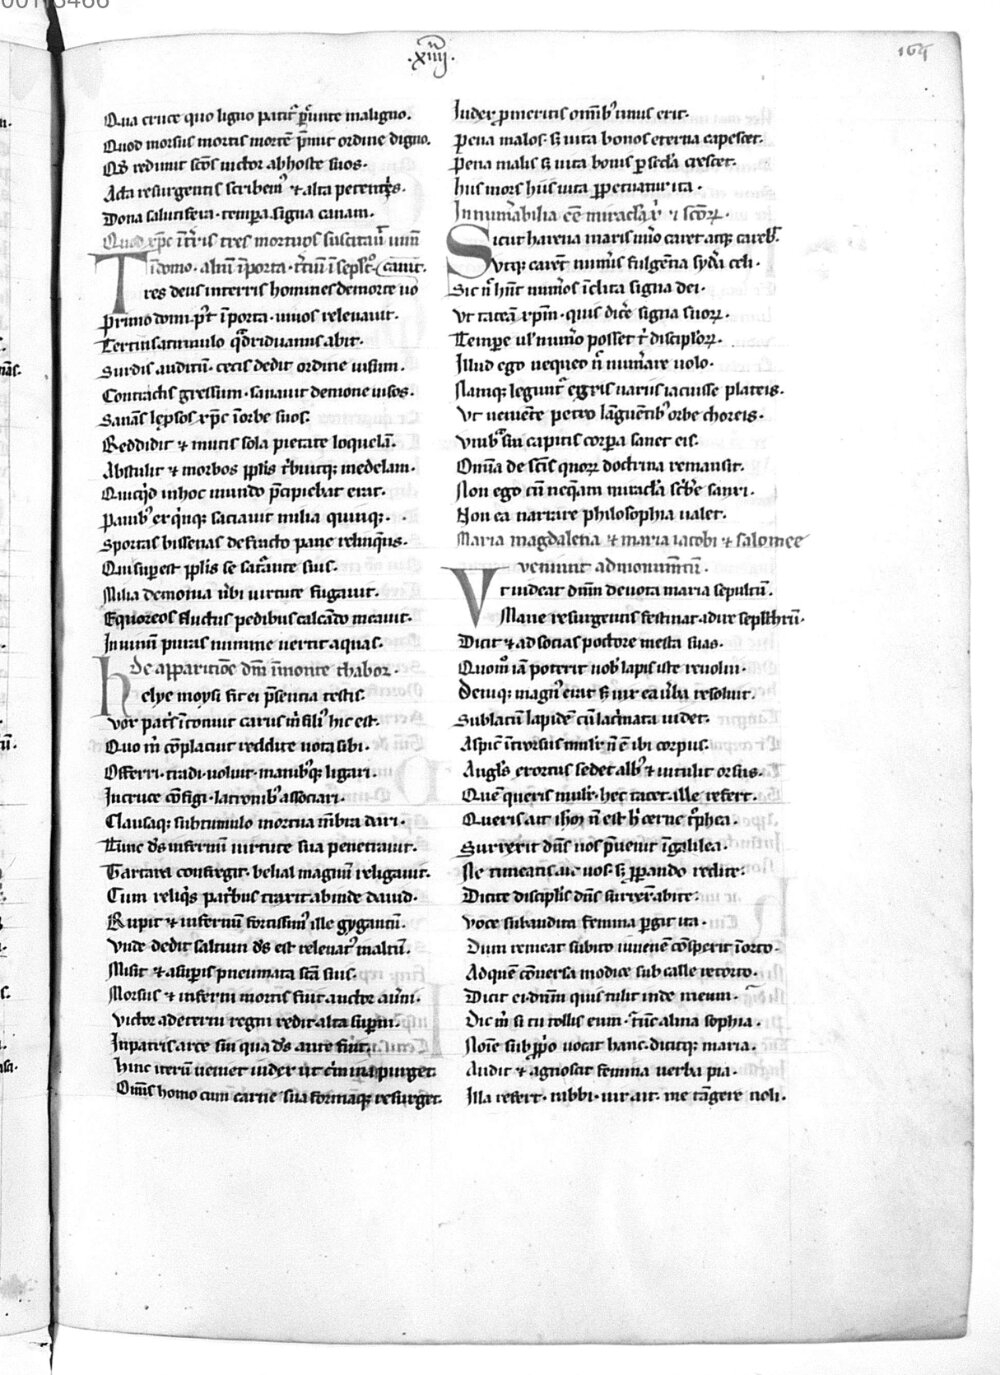 .xiiij.
164
Qua cruce quo ligno patit᷑ p̄eunte maligno.
Quod morsus mortis mortē p̄mit ordine digno.
Qđ redimit sc̄os uictor ab hoste suos.
Acta resurgentis scribem᷒ ⁊ alta petentis.
Dona salutifera. tempora signa canam.
xp̄c ī t̄ris tres mortuos suscitau᷑ unū
ī domo. aliū ī porta. t̄ciū ī sepl̄c̄o.
Tres deus in terris homines de morte uo cauit.
Primo domi. p̄t ī porta. uiuos releuauit.
Tertius a tumulo q̄driduanus abit.
Surdis auditū. cecis dedit ordine uisum.
Contractis gressum. sanauit demone uisos.
Sanās lepsos xp̄c ī orbe suos.
Reddidit ⁊ mutis sola pietate loquelā.
Abstulit ⁊ morbos pp̄lis t̄buitq; medelam.
Quicq̄d in hoc mundo p̄cipiebat erat.
Panib᷒ ex q̄nq; saciauit milia quinq;.
Sportas bissenas de fracto pane relinq̄ns.
Qui sup̄est pp̄lis se sat̄ante suis.
Milia demonia u̇bi uirtute fugauit.
Equoreos fluctus pedibus calcādo meauit.
In uinū puras numine uertit aquas.
De apparitiōe dn̄i ī monte thabor.
helye moysi fit ei p̄sentia testis.
Vox pat̄s ītonuit carus m̄ fili᷒ hic est.
Quo m̄ cōplacuit reddite uota sibi.
Offerri. tradi. uoluit. manib᷒q; ligari.
In cruce cōfigi. latronib᷒ associari.
Clausaq; sub tumulo mortua mēbra dari.
Tunc ds̄ infernū uirtute sua penetrauit.
Tartara confregit. belial magnū religauit.
Cum reliq̄s patribus traxit abinde dauid.
Rupit ⁊ infernū fortissim᷒ ille gygantū.
Vnde dedit saltum ds̄ est releuat᷒ in altū.
Misit ⁊ a sup̄is pneumata sc̄a suis.
Morsus ⁊ inferni mortis fuit auctor
Victor ad eterni regni redit alta sup̄ni.
In patris arce sui qua ds̄ ante fuit.
Hinc iterū ueniet iudex ut c̄mina purget.
Om̄is homo cum carne sua formaq; resurget.
Iudex p̄ meritis om̄ib᷒ unus erit.
Pena malos. s; uita bonos eterna capescet.
Pena malis s; uita bonis p̄ sec̄la crescet.
His mors hiis uita p̄petuatur ita.
Innum̄abilia ēē miracl̄a x᷑ ⁊ sc̄oꝝ.
Sicut harena maris nūo caret atq; careb᷑.
Vtq; carēt num̄is fulgentia syd̄a celi.
Sic n̄ hn̄t num̄os īclita signa dei.
Vt taceā xp̄m. quis dic̄e signa suoꝝ.
Tempore ul᷑ num̄o posset t̄ discipl̄oꝝ.
Illud ego nequeo n̄ num̄are uolo.
Namq; legunt᷑ egris uariis iacuisse plateis.
Vt ueniēte petro lāguētib᷒ orbe choreis.
Vmb̄ sui capitis corpora sanet eis.
Omīa de sc̄is quoꝝ doctrina remansit.
Non ego cū neq̄am miracl̄a sc̄be sanxi.
Non ea narrare philosophia ualet.
Maria magdalena ⁊ maria iacobi ⁊ salomee
ueniunt ad monum̄tū.
Vt uideat dn̄m deuota maria sepultū.
Mane resurgentis festinat adire seplchrū.
Dicit ⁊ ad socias pectore mesta suas.
Quom̊ iā poterit uob̄ lapis iste reuolui.
Deniq; magn᷒ erat
Sublatū lapidē cū lac̄mata uidet.
Aspic̄ ītrorsus mulr̄ n̄ ē ibi corpus.
Angl̄s exortus sedet alb᷒ ⁊ intulit orsus.
Quē queris mulr̄. hec tacet. ille refert.
Queris ait ih̄m n̄ est h̄ cerne t̄phea.
Surrexit dn̄s uos p̄ueniet ī galilea.
Ne timeatis aue uos. s; redite.
Dicite discipl̄is dn̄s surrex̄ abite.
Voce sub audita femina p̄git ita.
Dum remeat subito iuuenē cōspexit ī orto.
Ad quē cōuersa modice sub calle retorto.
Dicit ei dn̄m quis tulit inde meum.
Dic m̄ si tu tollis eum. t̄nc alma sophia.
Noīe sub pp̄o uocat hanc. dicitq; maria.
Audit ⁊ agnoscit femina uerba pia.
Illa refert. rabbi. uir ait. me tāgere noli.